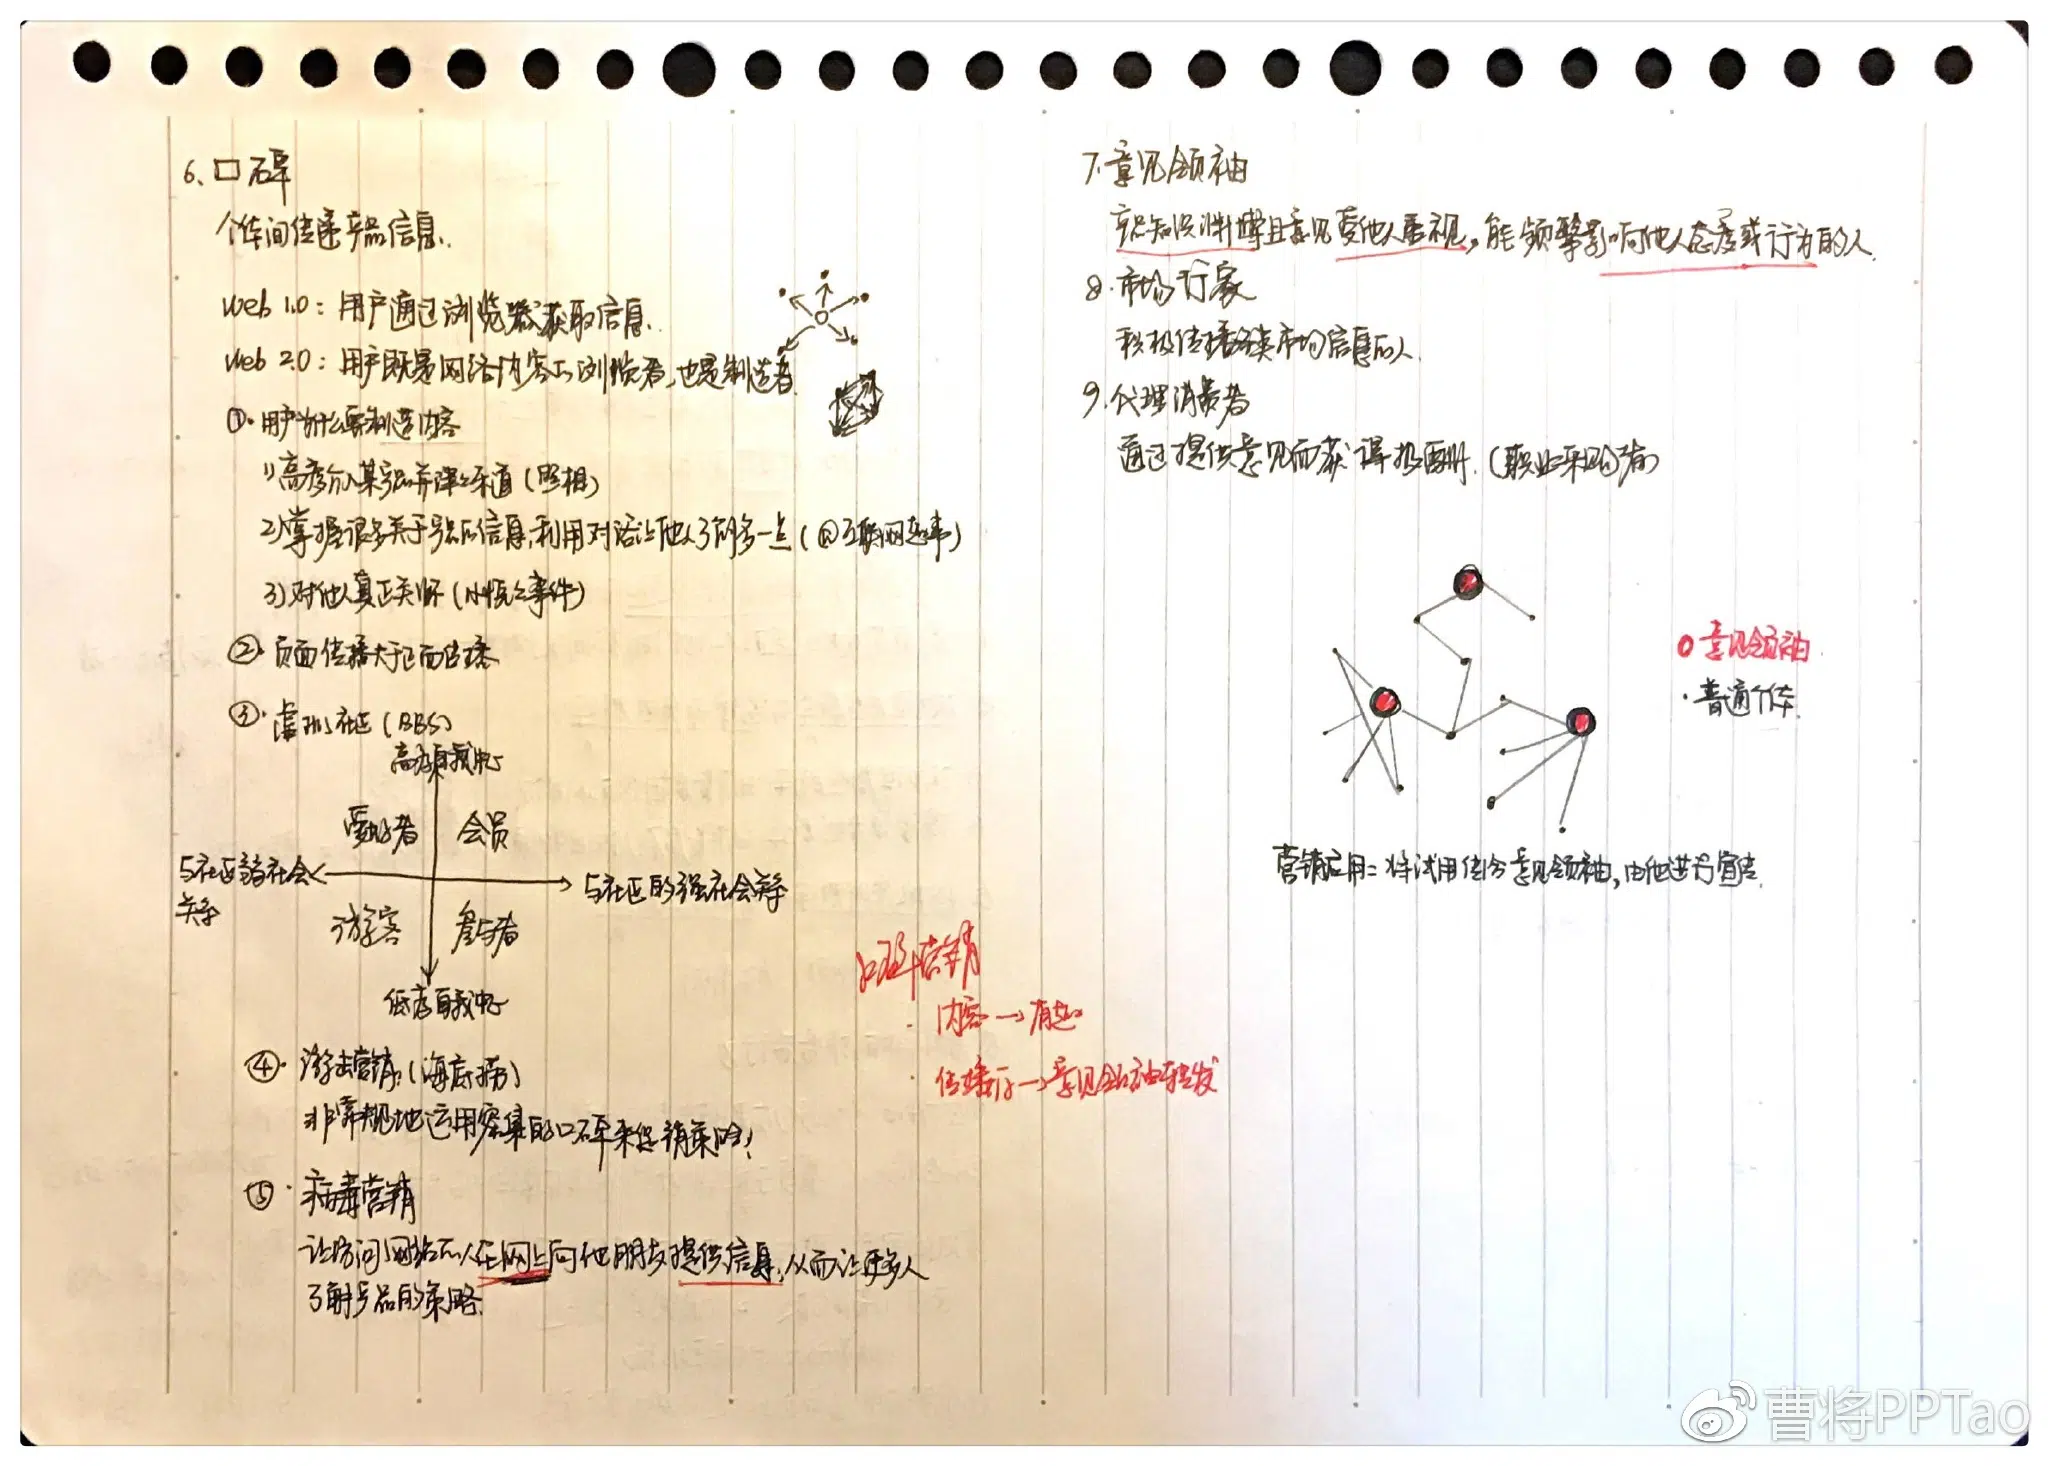 6、口碑
个体间传递产品信息.
Web 1.0：用户通过浏览器获取信息.
Web 2.0：用户既是网络内容的浏览者，也是制造者.
①·用户为什么要制造内容
1)高度介入某产品并津津乐道（照相）
2)掌握很多关于产品的信息，利用对话让他人了解多一点（@互联网那些事）
3)对他人真正关怀（小悦悦事件）
②·负面传播大于正面传播
③·虚拟社区（BBS）
高度自我中心
爱好者 会员
与社区弱社会关系
与社区的强社会关系
游客 参与者
低度自我中心
④·游击营销：（海底捞）
非常规地运用密集的口碑来促销策略！
⑤·病毒营销
让访问网站的人在网上向他朋友提供信息，从而让更多人
了解产品的策略.
口碑营销
内容→有趣
传播→意见领袖转发
7.意见领袖
产品知识渊博且意见受他人重视，能频繁影响他人态度或行为的人.
8.市场行家
积极传播各类市场信息的人.
9.代理消费者
通过提供意见而获得报酬.（职业采购者）
意见领袖
·普通个体
营销应用：将试用给意见领袖，由他进行宣传.
曹将PPTao